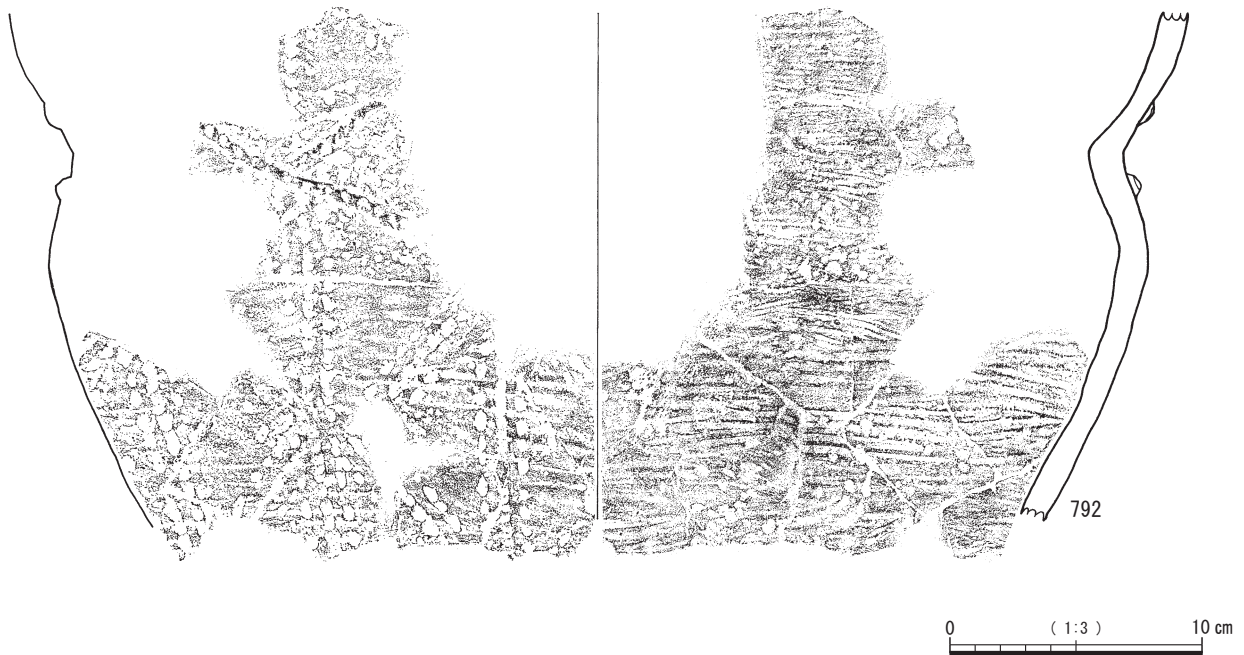 792
0 ( 1:3 ) 10 cm